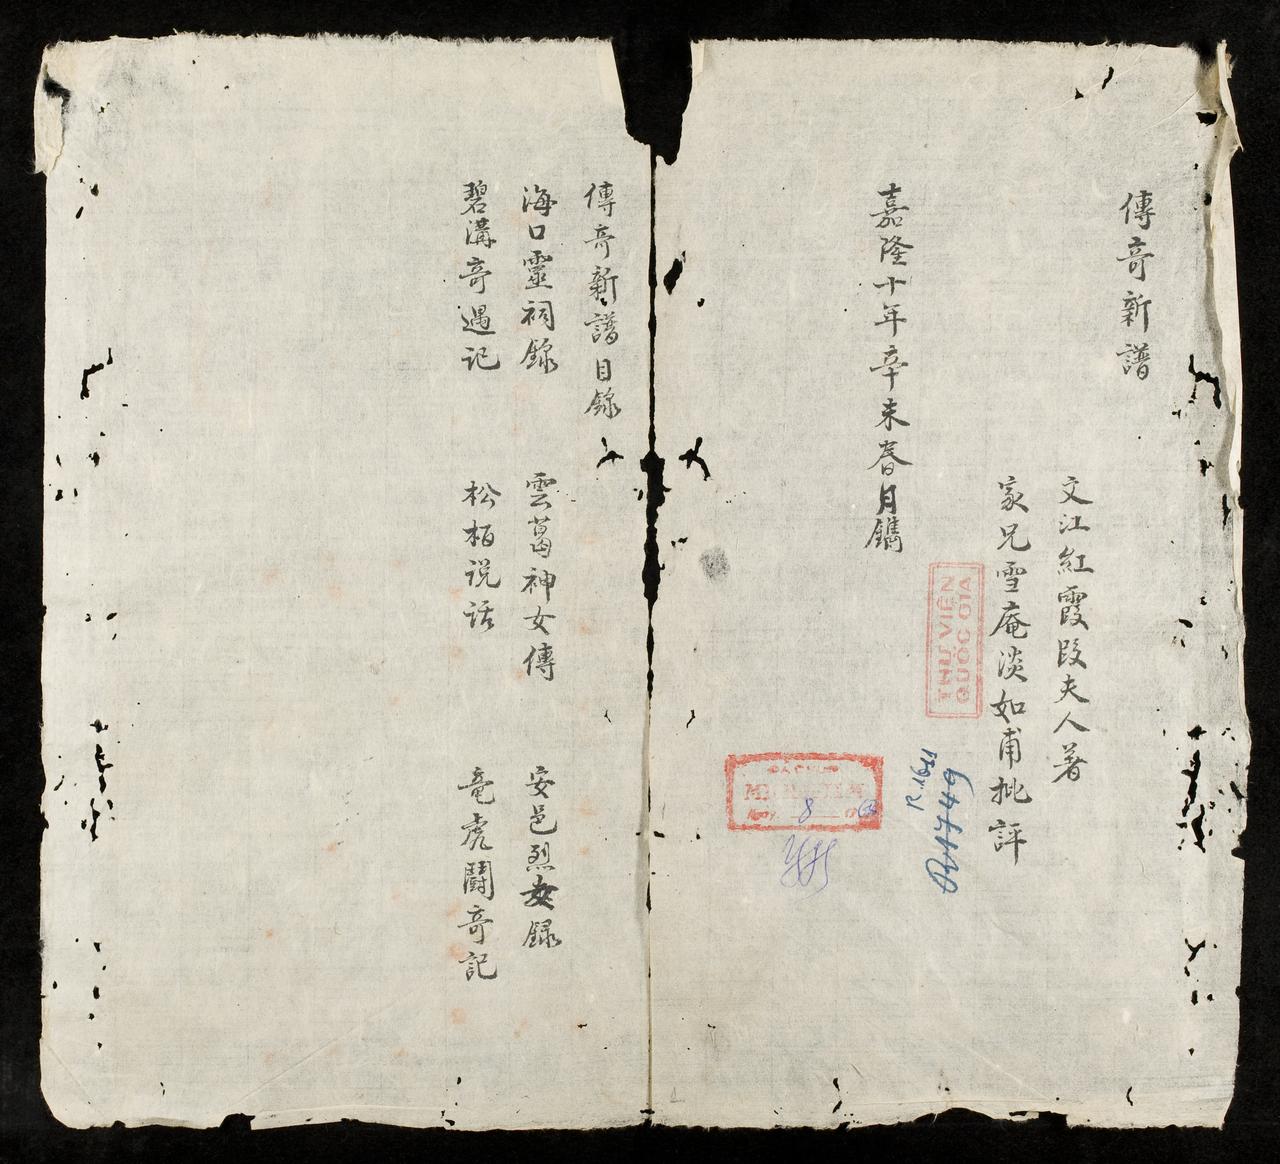 傳竒新譜
文江紅霞段夫人著
家兄雪庵淡如甫批評
嘉隆十年辛未春月鐫
THƯ VIỆN
QUỐC GIA
R.1611
8
傳竒新譜目錄
海口靈祠錄
雲葛神女傳
安邑烈女録
碧溝竒遇记
松栢说话
竜虎鬪竒記